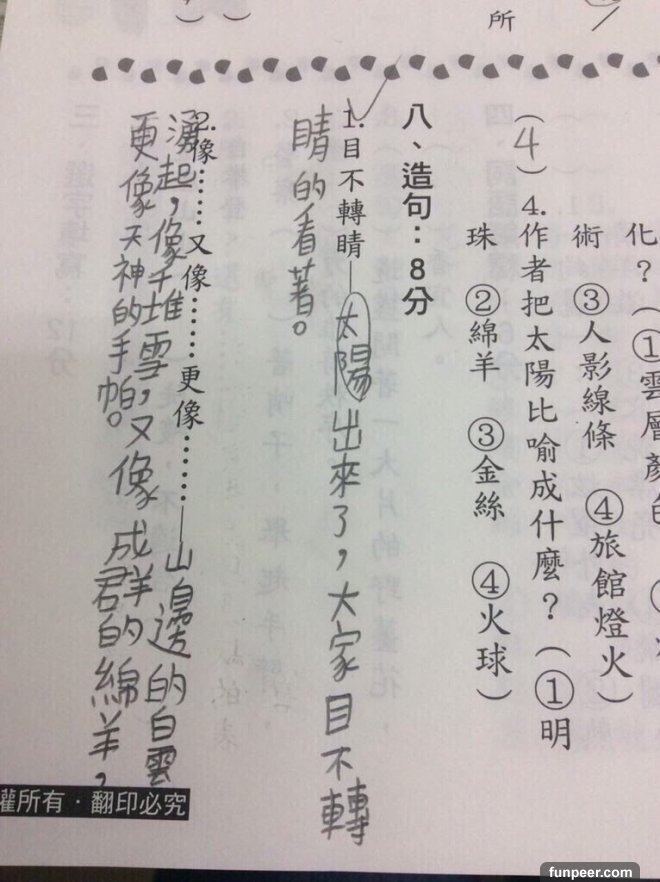 所
化？（①雲層顏
術　③人影線條　④旅館燈火）
（4）4.作者把太陽比喻成什麼？（①明
珠　②綿羊　③金絲　④火球）
八、造句：8分
1.目不轉睛—太陽出來了，大家目不轉
睛的看著。
2.像……又像……更像……—山邊的白雲
湧起，像千堆雪，又像成群的綿羊，
更像天神的手帕。
權所有・翻印必究
funpeer.com